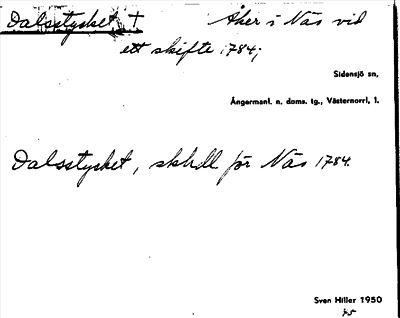 Dalsstycket † Åker i Näs vid
ett skifte 1784;
Sidensjö sn,
Ångermanl. n. doms. tg., Västernorrl, l.
Dalsstycket, skhdl för Näs 1784.
Sven Hiller 1950